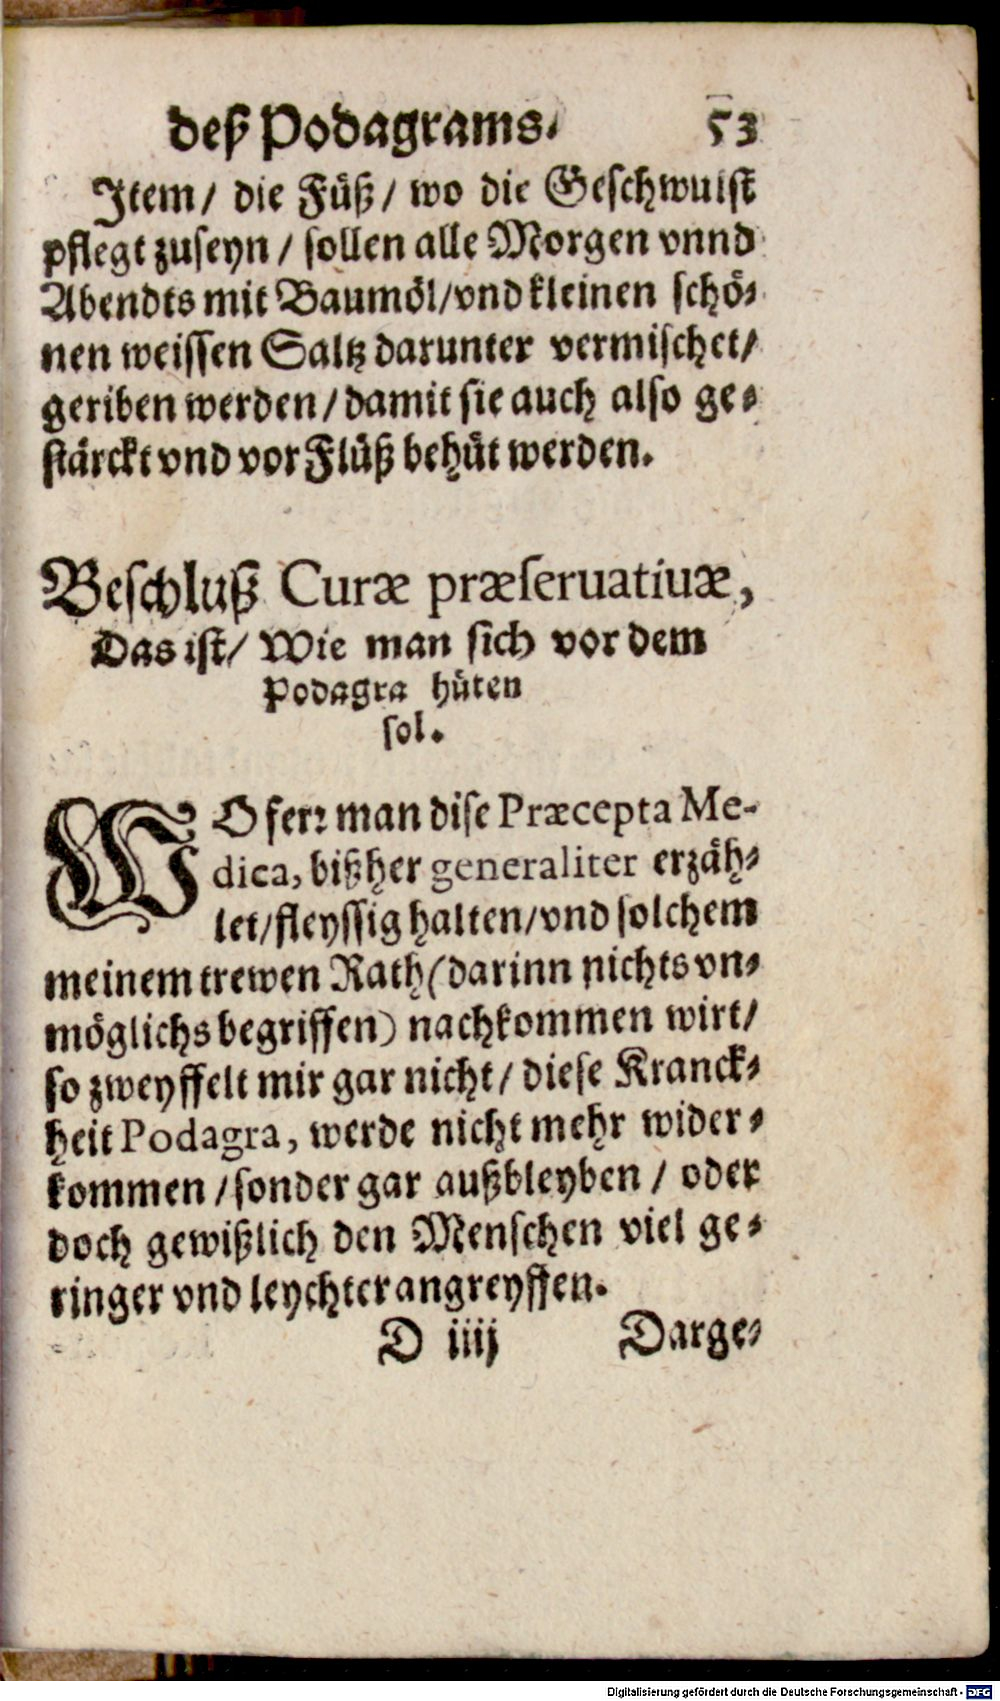 deß Podagrams. 53
Item/ die Füß/ wo die Geschwulst
pflegt zuseyn/ sollen alle Morgen vnnd
Abendts mit Baumöl/vnd kleinen schö-
nen weissen Saltz darunter vermischet/
geriben werden/damit sie auch also ge-
stärckt vnd vor Flüß behüt werden.
Beschluß Curæ præseruatiuæ,
Das ist/ Wie man sich vor dem
Podagra hüten
sol.
WO ferꝛ man dise Præcepta Me-
dica, bißher generaliter erzäh-
let/fleyssig halten/vnd solchem
meinem trewen Rath(darinn nichts vn-
möglichs begriffen) nachkommen wirt/
so zweyffelt mir gar nicht/ diese Kranck-
heit Podagra, werde nicht mehr wider-
kommen/sonder gar außbleyben/ oder
doch gewißlich den Menschen viel ge-
ringer vnd leychter angreyffen.
D iiij Darge-
Digitalisierung gefördert durch die Deutsche Forschungsgemeinschaft - DFG